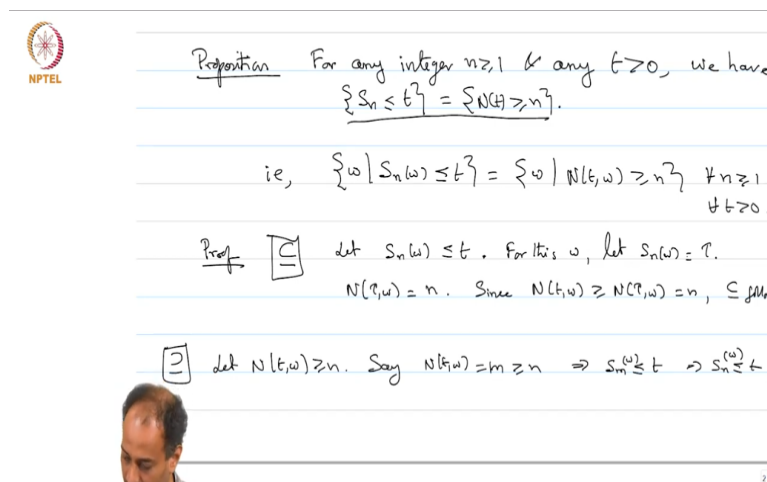 NPTEL
Proposition For any integer n≥1 & any t>0, we have
{Sn ≤ t} = {N(t) ≥ n}.
ie, {ω | Sn(ω) ≤ t} = {ω | N(t,ω) ≥ n} ∀ n≥1
∀ t>0
Proof ⊆ Let Sn(ω) ≤ t. For this ω, let Sn(ω) = τ.
N(τ,ω) = n. Since N(t,ω) ≥ N(τ,ω) = n, ⊆
⊇ Let N(t,ω) ≥ n. Say N(t,ω) = m ≥ n ⇒ Sm(ω) ≤ t ⇒ Sn(ω) ≤ t
2